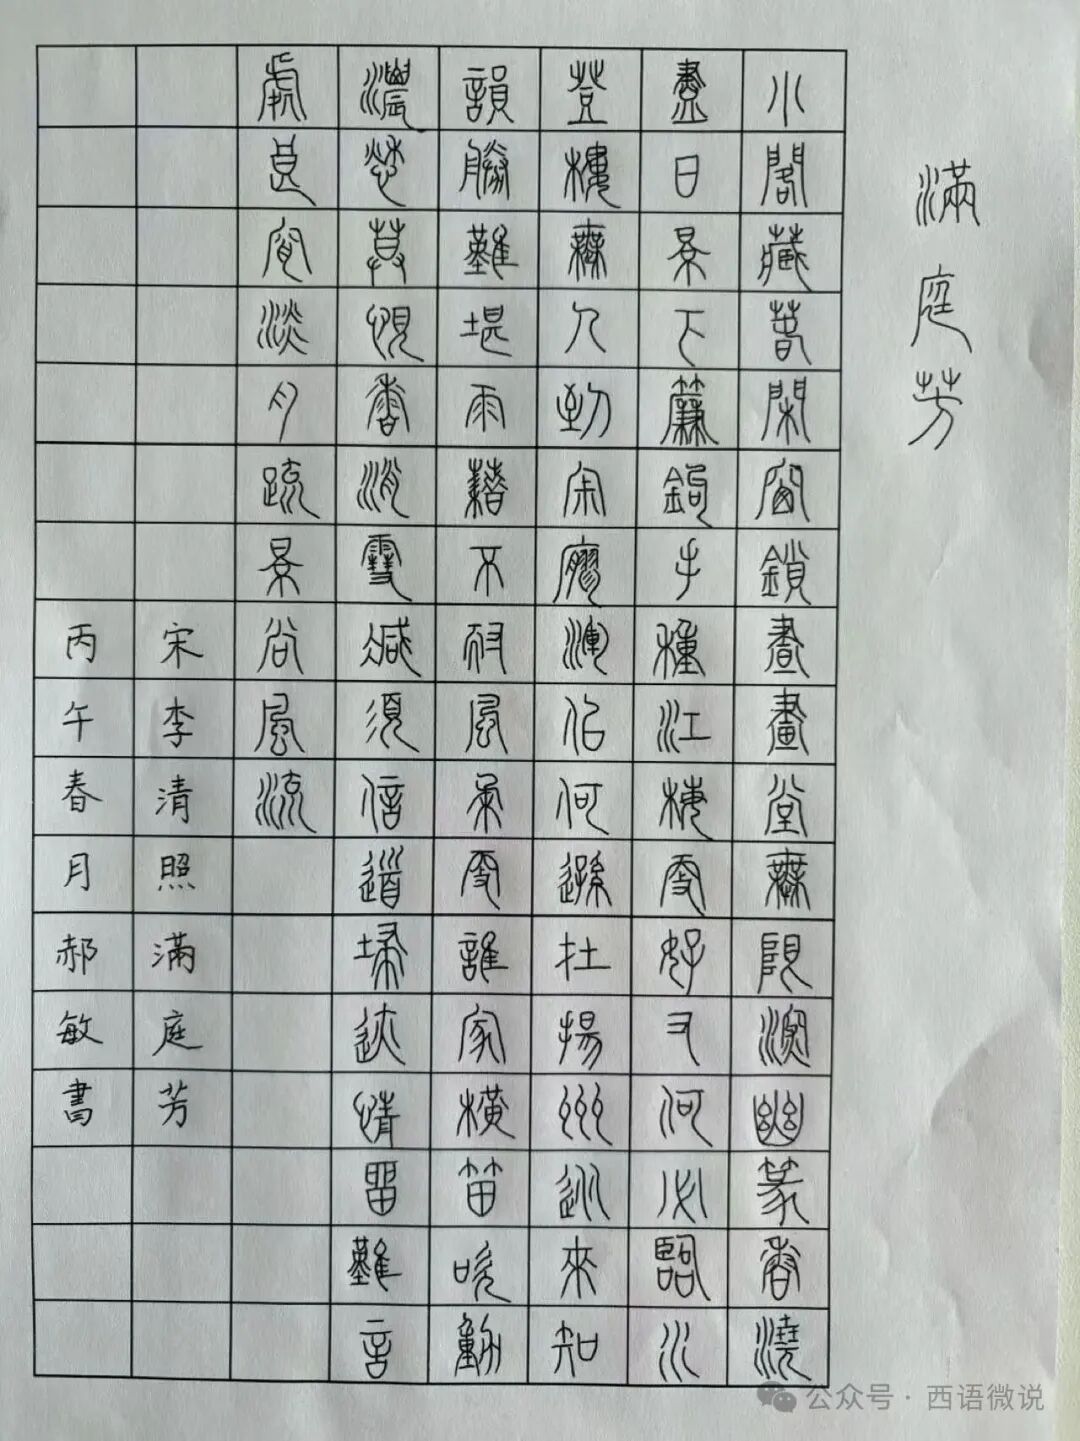 滿庭芳
小閣藏春閑窗鎖晝畫堂無限深幽篆香燒
盡日景下簾鉤手種江梅更好又何必臨水
登樓無人到寂寥渾佀何遜在揚州從來知
韻勝難堪雨藉不耐風柔更誰家橫笛吹動
濃愁莫恨香消雪減須信道掃迹情留難言
處良窗淡月疏景尚風流
宋李清照滿庭芳
丙午春月郝敏書
公众号·西语微说